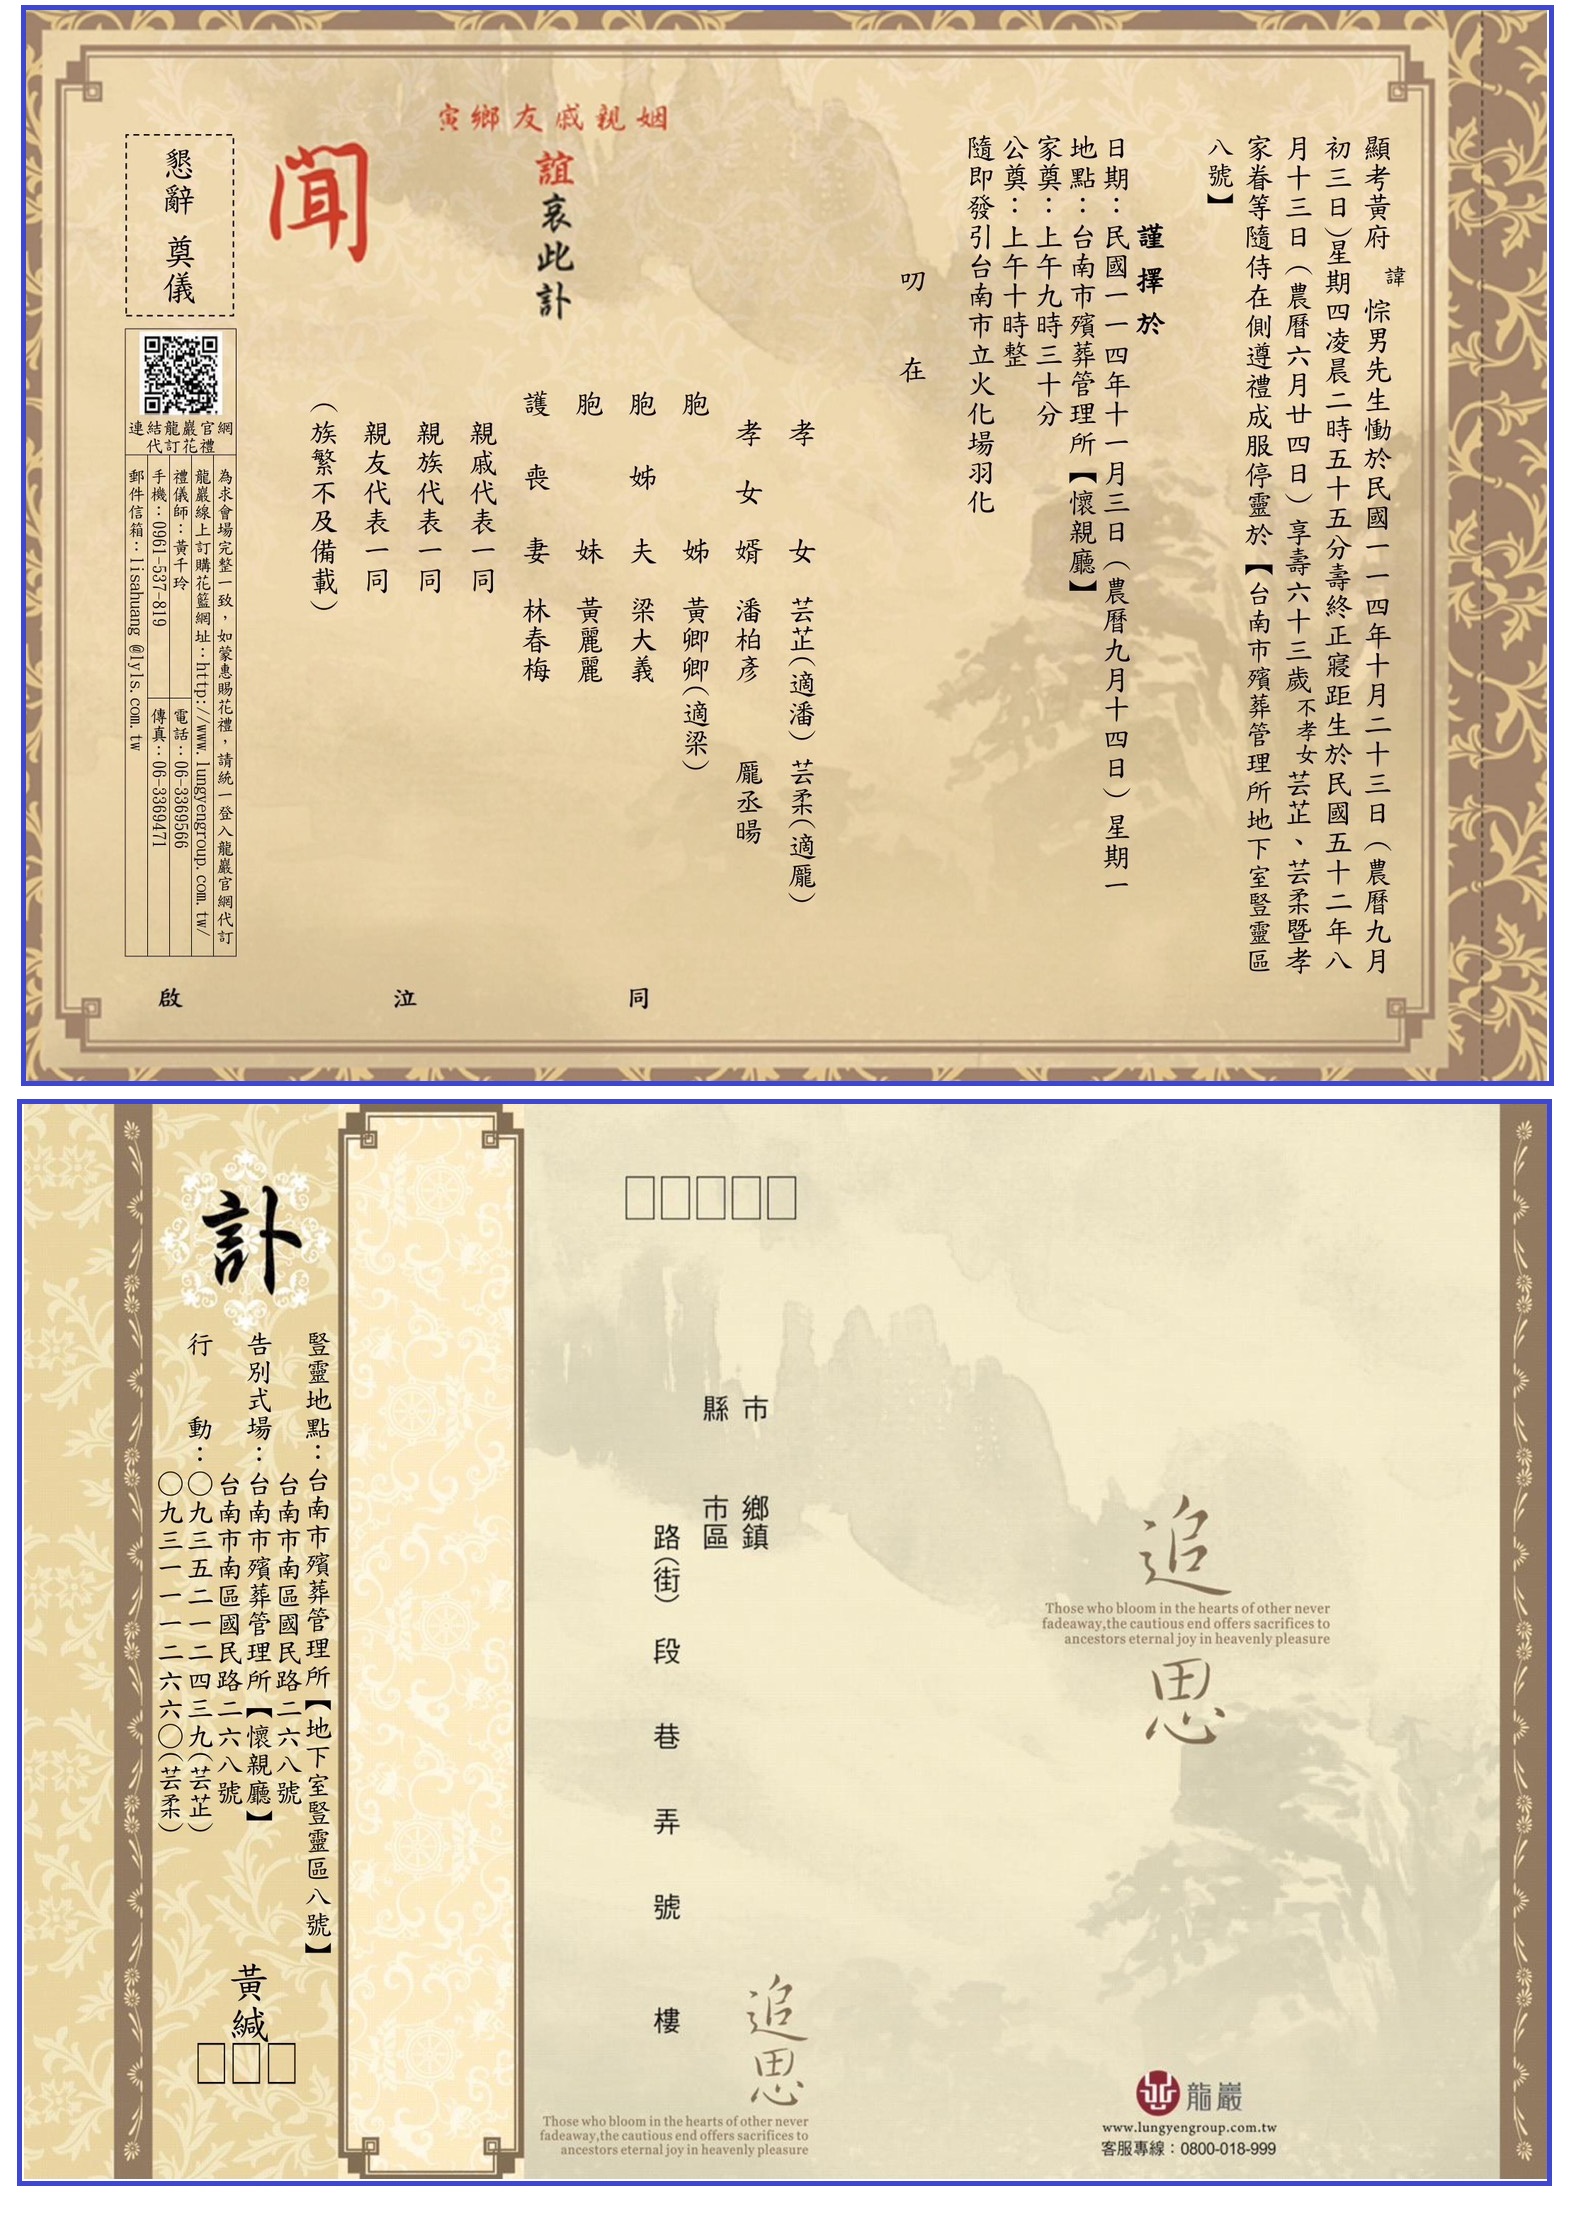 顯考黃府 諱 悰男先生慟於民國一一四年十月二十三日（農曆九月
初三日）星期四凌晨二時五十五分壽終正寢距生於民國五十二年八
月十三日（農曆六月廿四日）享壽六十三歲不孝女芸芷、芸柔暨孝
家眷等隨侍在側遵禮成服停靈於【台南市殯葬管理所地下室豎靈區
八號】
謹擇於
日期：民國一一四年十一月三日（農曆九月十四日）星期一
地點：台南市殯葬管理所【懷親廳】
家奠：上午九時三十分
公奠：上午十時整
隨即發引台南市立火化場羽化
叨 在
姻親戚友鄉寅
誼哀此訃
聞
孝 女 芸芷（適潘） 芸柔（適龐）
孝女婿 潘柏彥 龐丞暘
胞 姊 黃卿卿（適梁）
胞姊夫 梁大義
胞 妹 黃麗麗
護喪妻 林春梅
親戚代表一同
親族代表一同
親友代表一同
（族繁不及備載）
同 泣 啟
懇辭 奠儀
連結龍巖官網
代訂花禮
為求會場完整一致，如蒙惠賜花禮，請統一登入龍巖官網代訂
龍巖線上訂購花籃網址：http://www.lungyengroup.com.tw/
禮儀師：黃千玲
電話：06-3369566
手機：0961-537-819
傳真：06-3369471
郵件信箱：lisahuang @lyls.com.tw
訃
豎靈地點：台南市殯葬管理所【地下室豎靈區八號】
台南市南區國民路二六八號
告別式場：台南市殯葬管理所【懷親廳】
台南市南區國民路二六八號
行 動：〇九三五二一二四三九（芸芷）
〇九三一一一二六六〇（芸柔）
黃緘
市 鄉鎮
縣 市區
路（街） 段 巷 弄 號 樓
追
思
Those who bloom in the hearts of other never
fadeaway,the cautious end offers sacrifices to
ancestors eternal joy in heavenly pleasure
追
Those who bloom in the hearts of other never
fadeaway,the cautious end offers sacrifices to
ancestors eternal joy in heavenly pleasure
思
龍巖
www.lungyengroup.com.tw
客服專線：0800-018-999